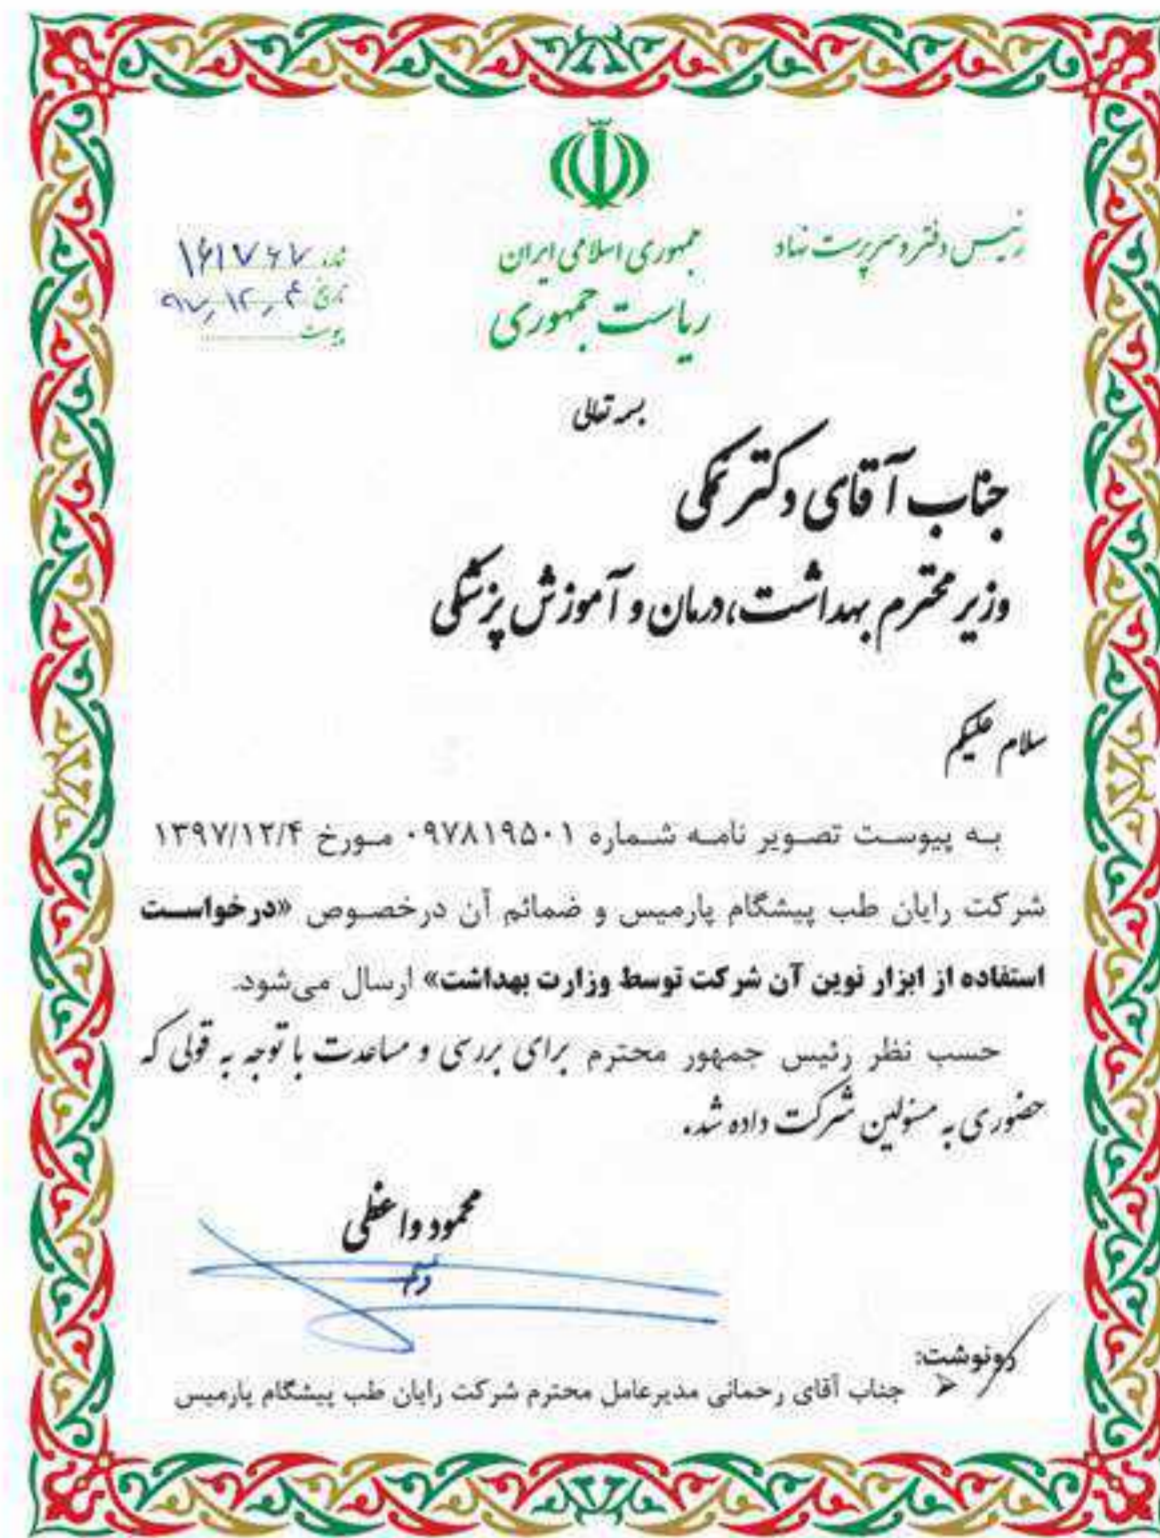 رئیس دفتر و سرپرست نهاد
جمهوری اسلامی ایران
ریاست جمهوری
شماره ۱۶۱۷۶۷
تاریخ ۹۷،۱۲،۴
پیوست
بسمه تعالی
جناب آقای دکتر نمکی
وزیر محترم بهداشت، درمان و آموزش پزشکی
سلام علیکم
به پیوست تصویر نامه شماره ۰۹۷۸۱۹۵۰۱ مورخ ۱۳۹۷/۱۲/۴
شرکت رایان طب پیشگام پارمیس و ضمائم آن درخصوص «درخواست
استفاده از ابزار نوین آن شرکت توسط وزارت بهداشت» ارسال می‌شود.
حسب نظر رئیس جمهور محترم برای بررسی و مساعدت با توجه به قولی که
حضوری به مسئولین شرکت داده شد.
محمود واعظی
رونوشت:
جناب آقای رحمانی مدیرعامل محترم شرکت رایان طب پیشگام پارمیس